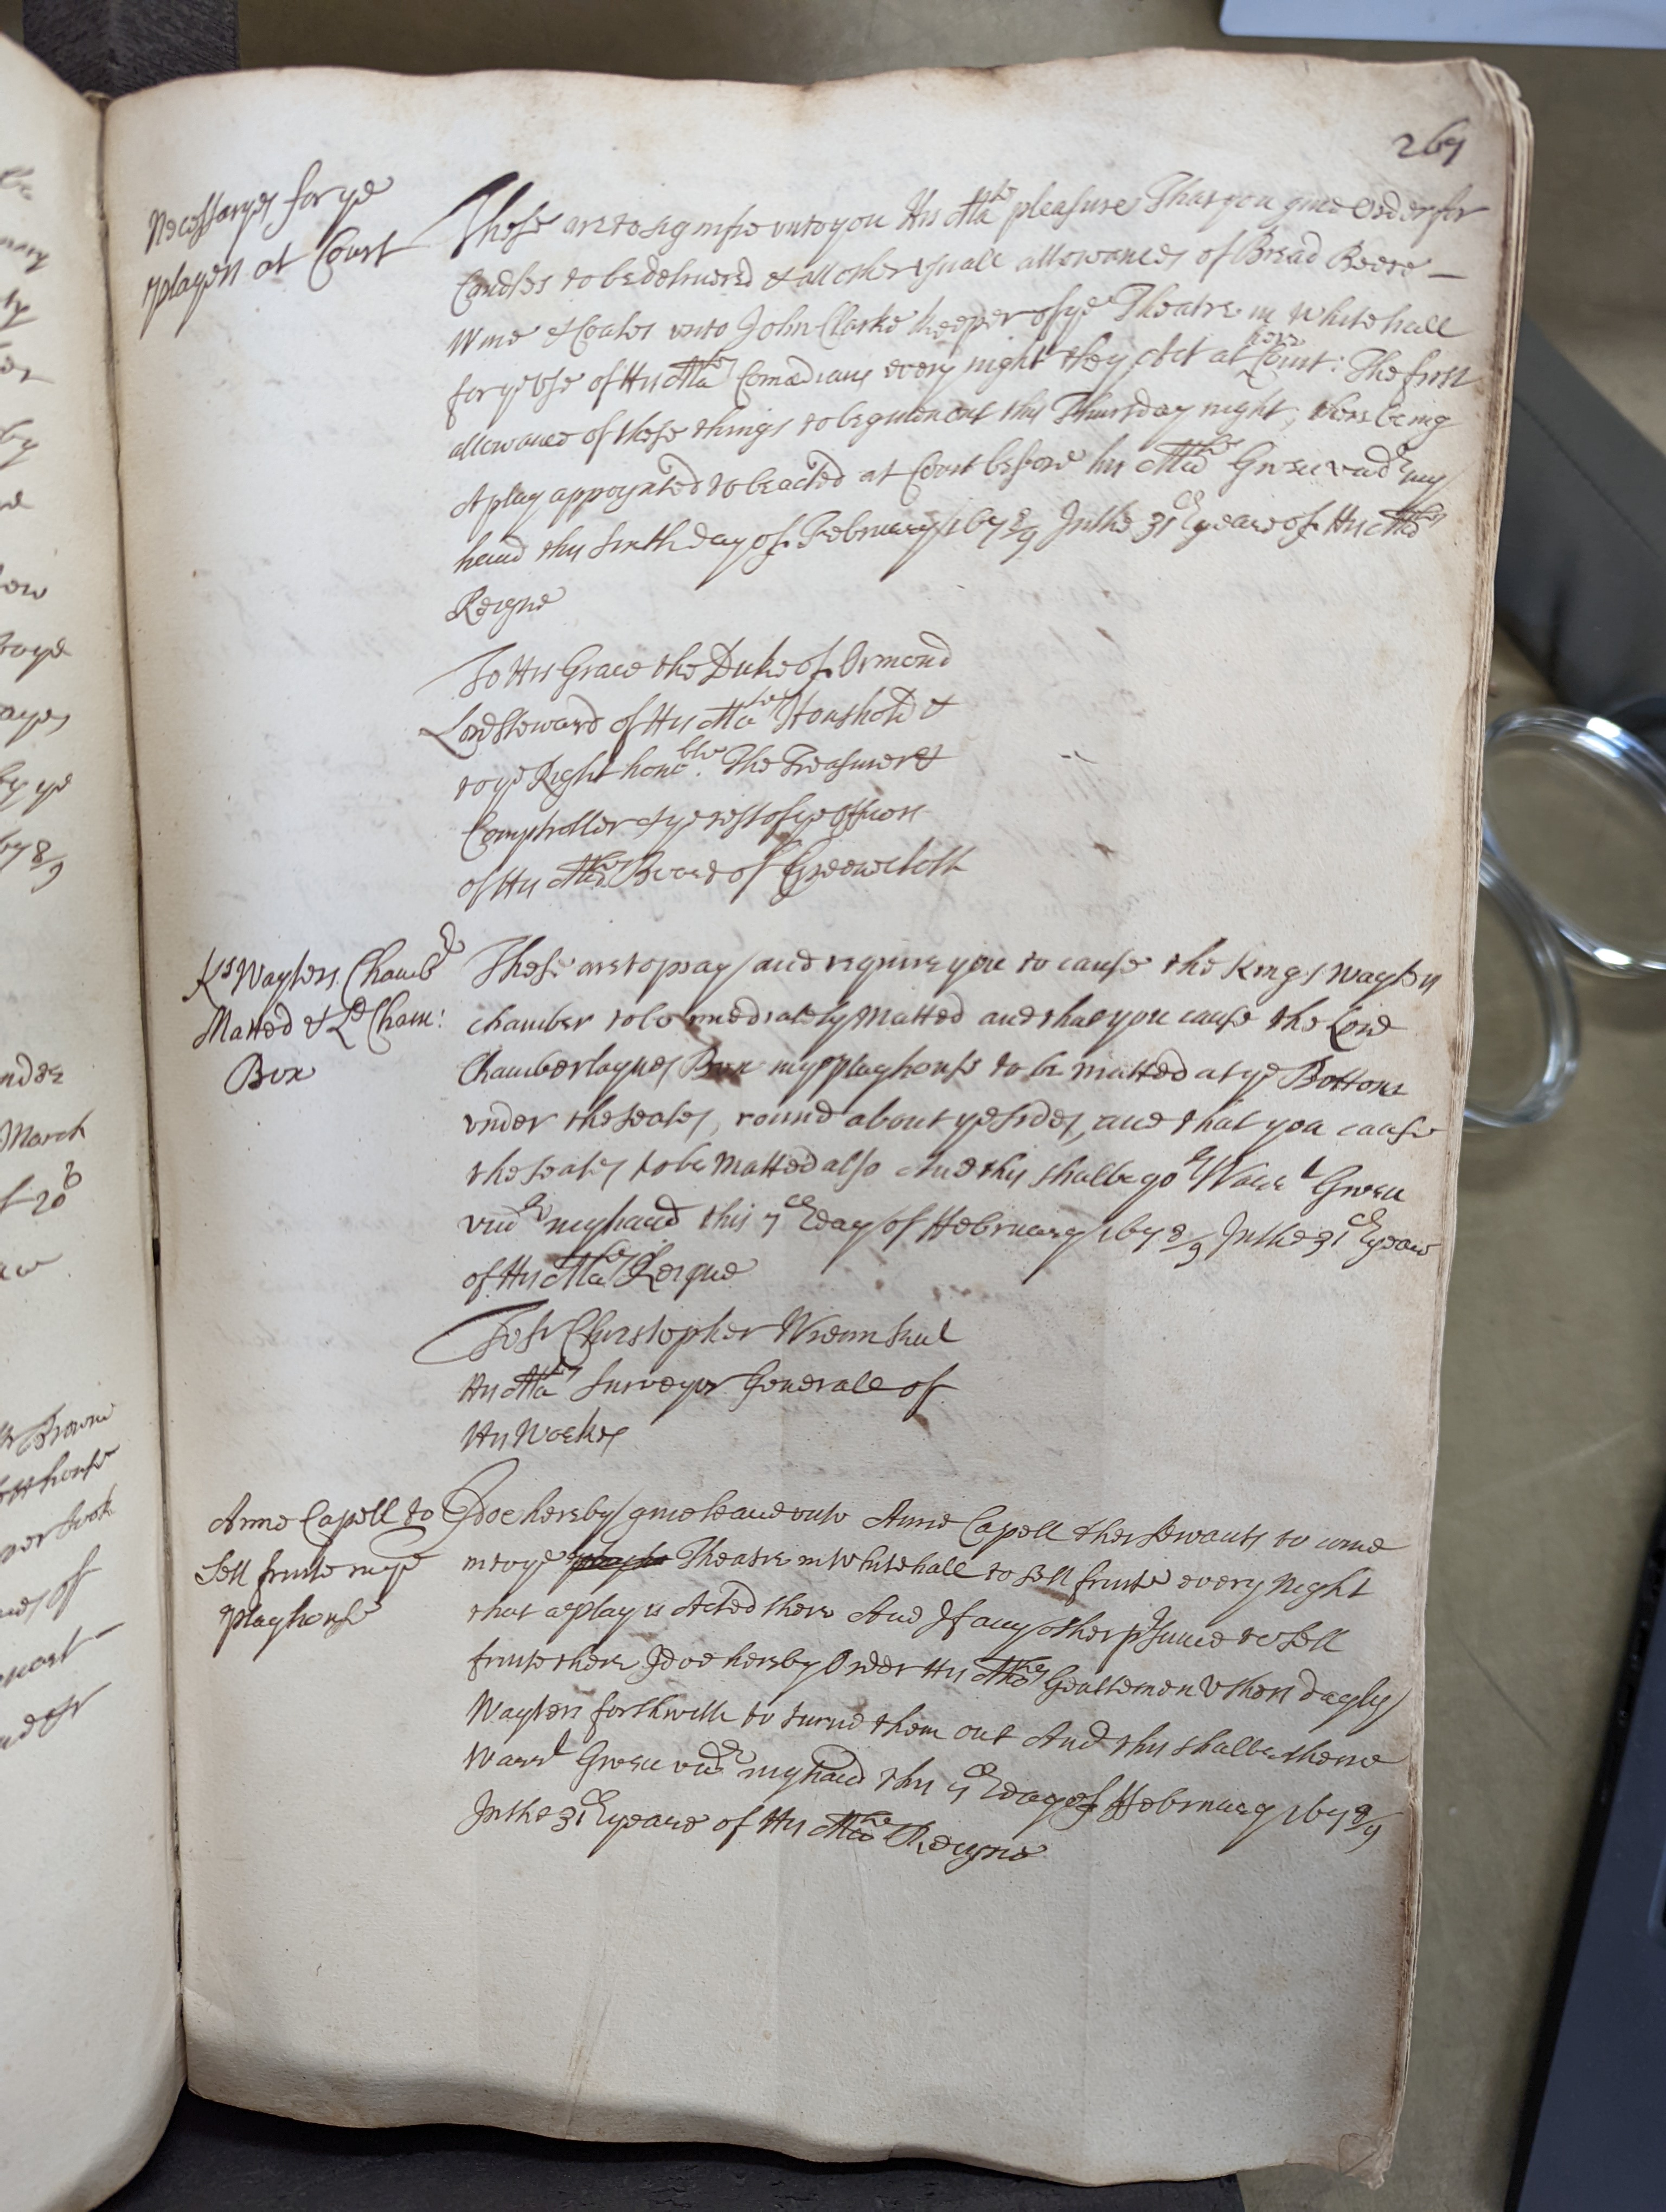 267
Necessaryes for ye
players at Court
These are to signifie vnto you His Mats pleasure That you giue order for
Candles to be deliuered & all other vsuall allowances of Bread Beere
Wine & Coales vnto John Clarke keeper of ye Theatre in Whitehall
for ye vse of His Mates Comœdians every night they Act at Court: The first
here
allowance of these things to be giuen out this Thursday night, there being
A play appoynted to be acted at Court before his Matie Giuen vnder my
hand this sixth day of February 1678/9 In the 31th yeare of His Mates
Reigne
To His Grace the Duke of Ormond
Lord Steward of His Mates Houshold &
to ye Right honoble. The Treasurer &
Comptroller & ye rest of ye Officers
of His Mates Board of Greenecloth
Ks Wayters Chambr
Matted & Ld Cham:
Box
These are to pray and require you to cause the Kings Wayters
chamber to be imediately Matted and that you cause the Lord
Chamberlaynes Box in ye playhouse to be matted at ye Bottome
vnder the seates, round about ye sides, and that you cause
the seates to be Matted also And this shall be yor Warrt Giuen
vndr my hand this 7th day of February 1678/9 In the 31th yeare
of His Mates Reigne
To Sr Christopher Wrenn
His Mates Surveyor Generall of
His Workes
Anne Capell to
sell fruite in ye
playhouse
I doe hereby giue leaue vnto Anne Capell & her servants to come
into ye Theatre in Whitehall to sell fruite every Night
that a play is Acted there And If any other psume to sell
fruite there I doe hereby Order His Mates Gentlemen Vshers dayly
Wayters forthwith to turne them out And this shall be theire
Warrt Giuen vndr my hand this 7th day of February 1678/9
In the 31th yeare of His Mates Reigne